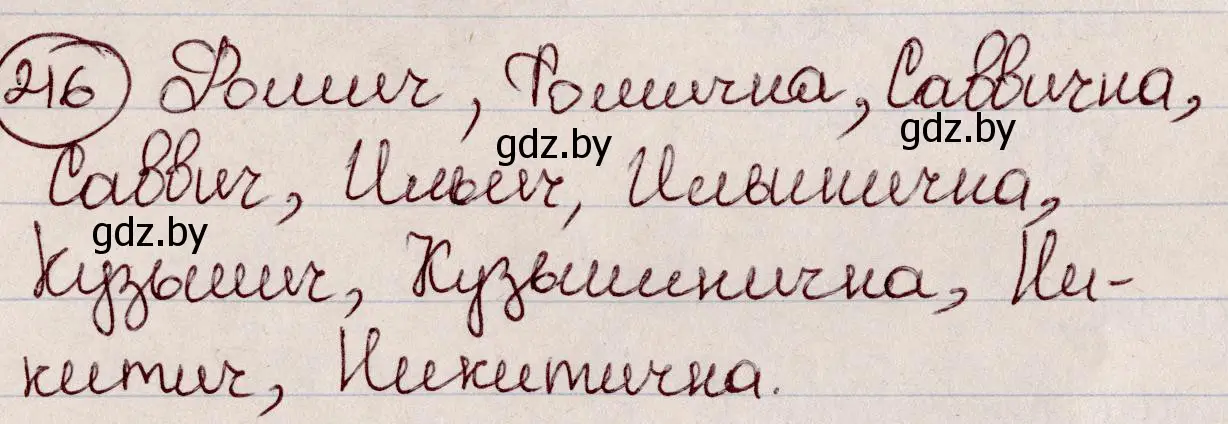 216 Фомич, Фомична, Саввична,
gdz.by
gdz.by
Саввич, Ильич, Ильинична,
gdz.by
Кузьмич, Кузьминична, Ни-
китич, Никитична.